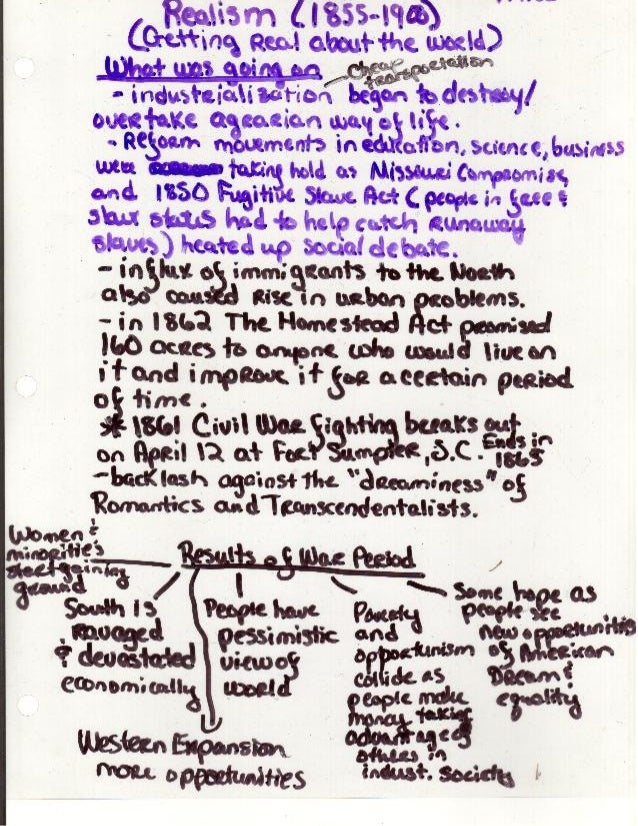 Realism (1855-1900)
(Getting Real about the World)
What was going on
Cheap
transportation
- industrialization began to destroy/
overtake agrarian way of life.
- Reform movements in education, science, business
were taking hold as Missouri Compromise
and 1850 Fugitive Slave Act (people in free &
slave states had to help catch runaway
slaves) heated up social debate.
- influx of immigrants to the North
also caused rise in urban problems.
- in 1862 The Homestead Act promised
160 acres to anyone who would live on
it and improve it for a certain period
of time.
* 1861 Civil War fighting breaks out
on April 12 at Fort Sumpter, S.C. Ends in
1865
- backlash against the "dreaminess" of
Romantics and Transcendentalists.
Results of War Period
Women &
minorities
start gaining
ground
South is
ravaged
& devastated
economically
Western Expansion
more opportunities
People have
pessimistic
view of
world
Poverty
and
opportunism
collide as
people make
money taking
advantage of
others in
indust. society
Some hope as
people see
new opportunities
of American
Dream &
equality